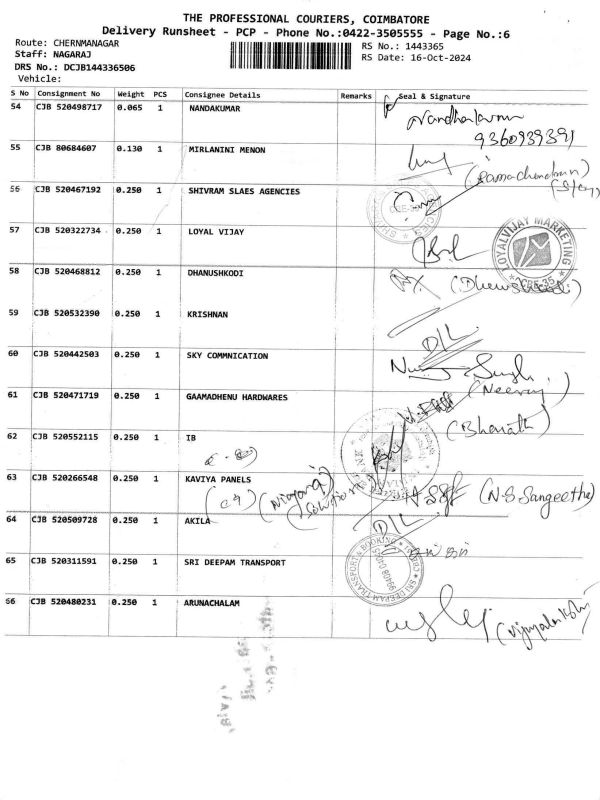 THE PROFESSIONAL COURIERS, COIMBATORE
Delivery Runsheet - PCP - Phone No.:0422-3505555 - Page No.:6
Route: CHERNMANAGAR
Staff: NAGARAJ
DRS No.: DCJB144336506
Vehicle:
RS No.: 1443365
RS Date: 16-Oct-2024
S No Consignment No Weight PCS Consignee Details Remarks Seal & Signature
54 CJB 520498717 0.065 1 NANDAKUMAR
9360939391
55 CJB 80684607 0.130 1 MIRLANINI MENON
(Ramachandran)
56 CJB 520467192 0.250 1 SHIVRAM SLAES AGENCIES
57 CJB 520322734 0.250 1 LOYAL VIJAY
LOYALVIJAY MARKETING
CBE-35
58 CJB 520468812 0.250 1 DHANUSHKODI
59 CJB 520532390 0.250 1 KRISHNAN
D/L
60 CJB 520442503 0.250 1 SKY COMMNICATION
Singh
(Neeraj)
61 CJB 520471719 0.250 1 GAAMADHENU HARDWARES
(Bharath)
62 CJB 520552115 0.250 1 IB
63 CJB 520266548 0.250 1 KAVIYA PANELS
(N.S. Sangeetha)
64 CJB 520509728 0.250 1 AKILA
D/L
65 CJB 520311591 0.250 1 SRI DEEPAM TRANSPORT
SRI DEEPAM TRANSPORT & BOOKING
66 CJB 520480231 0.250 1 ARUNACHALAM
(Vijayalakshmi)